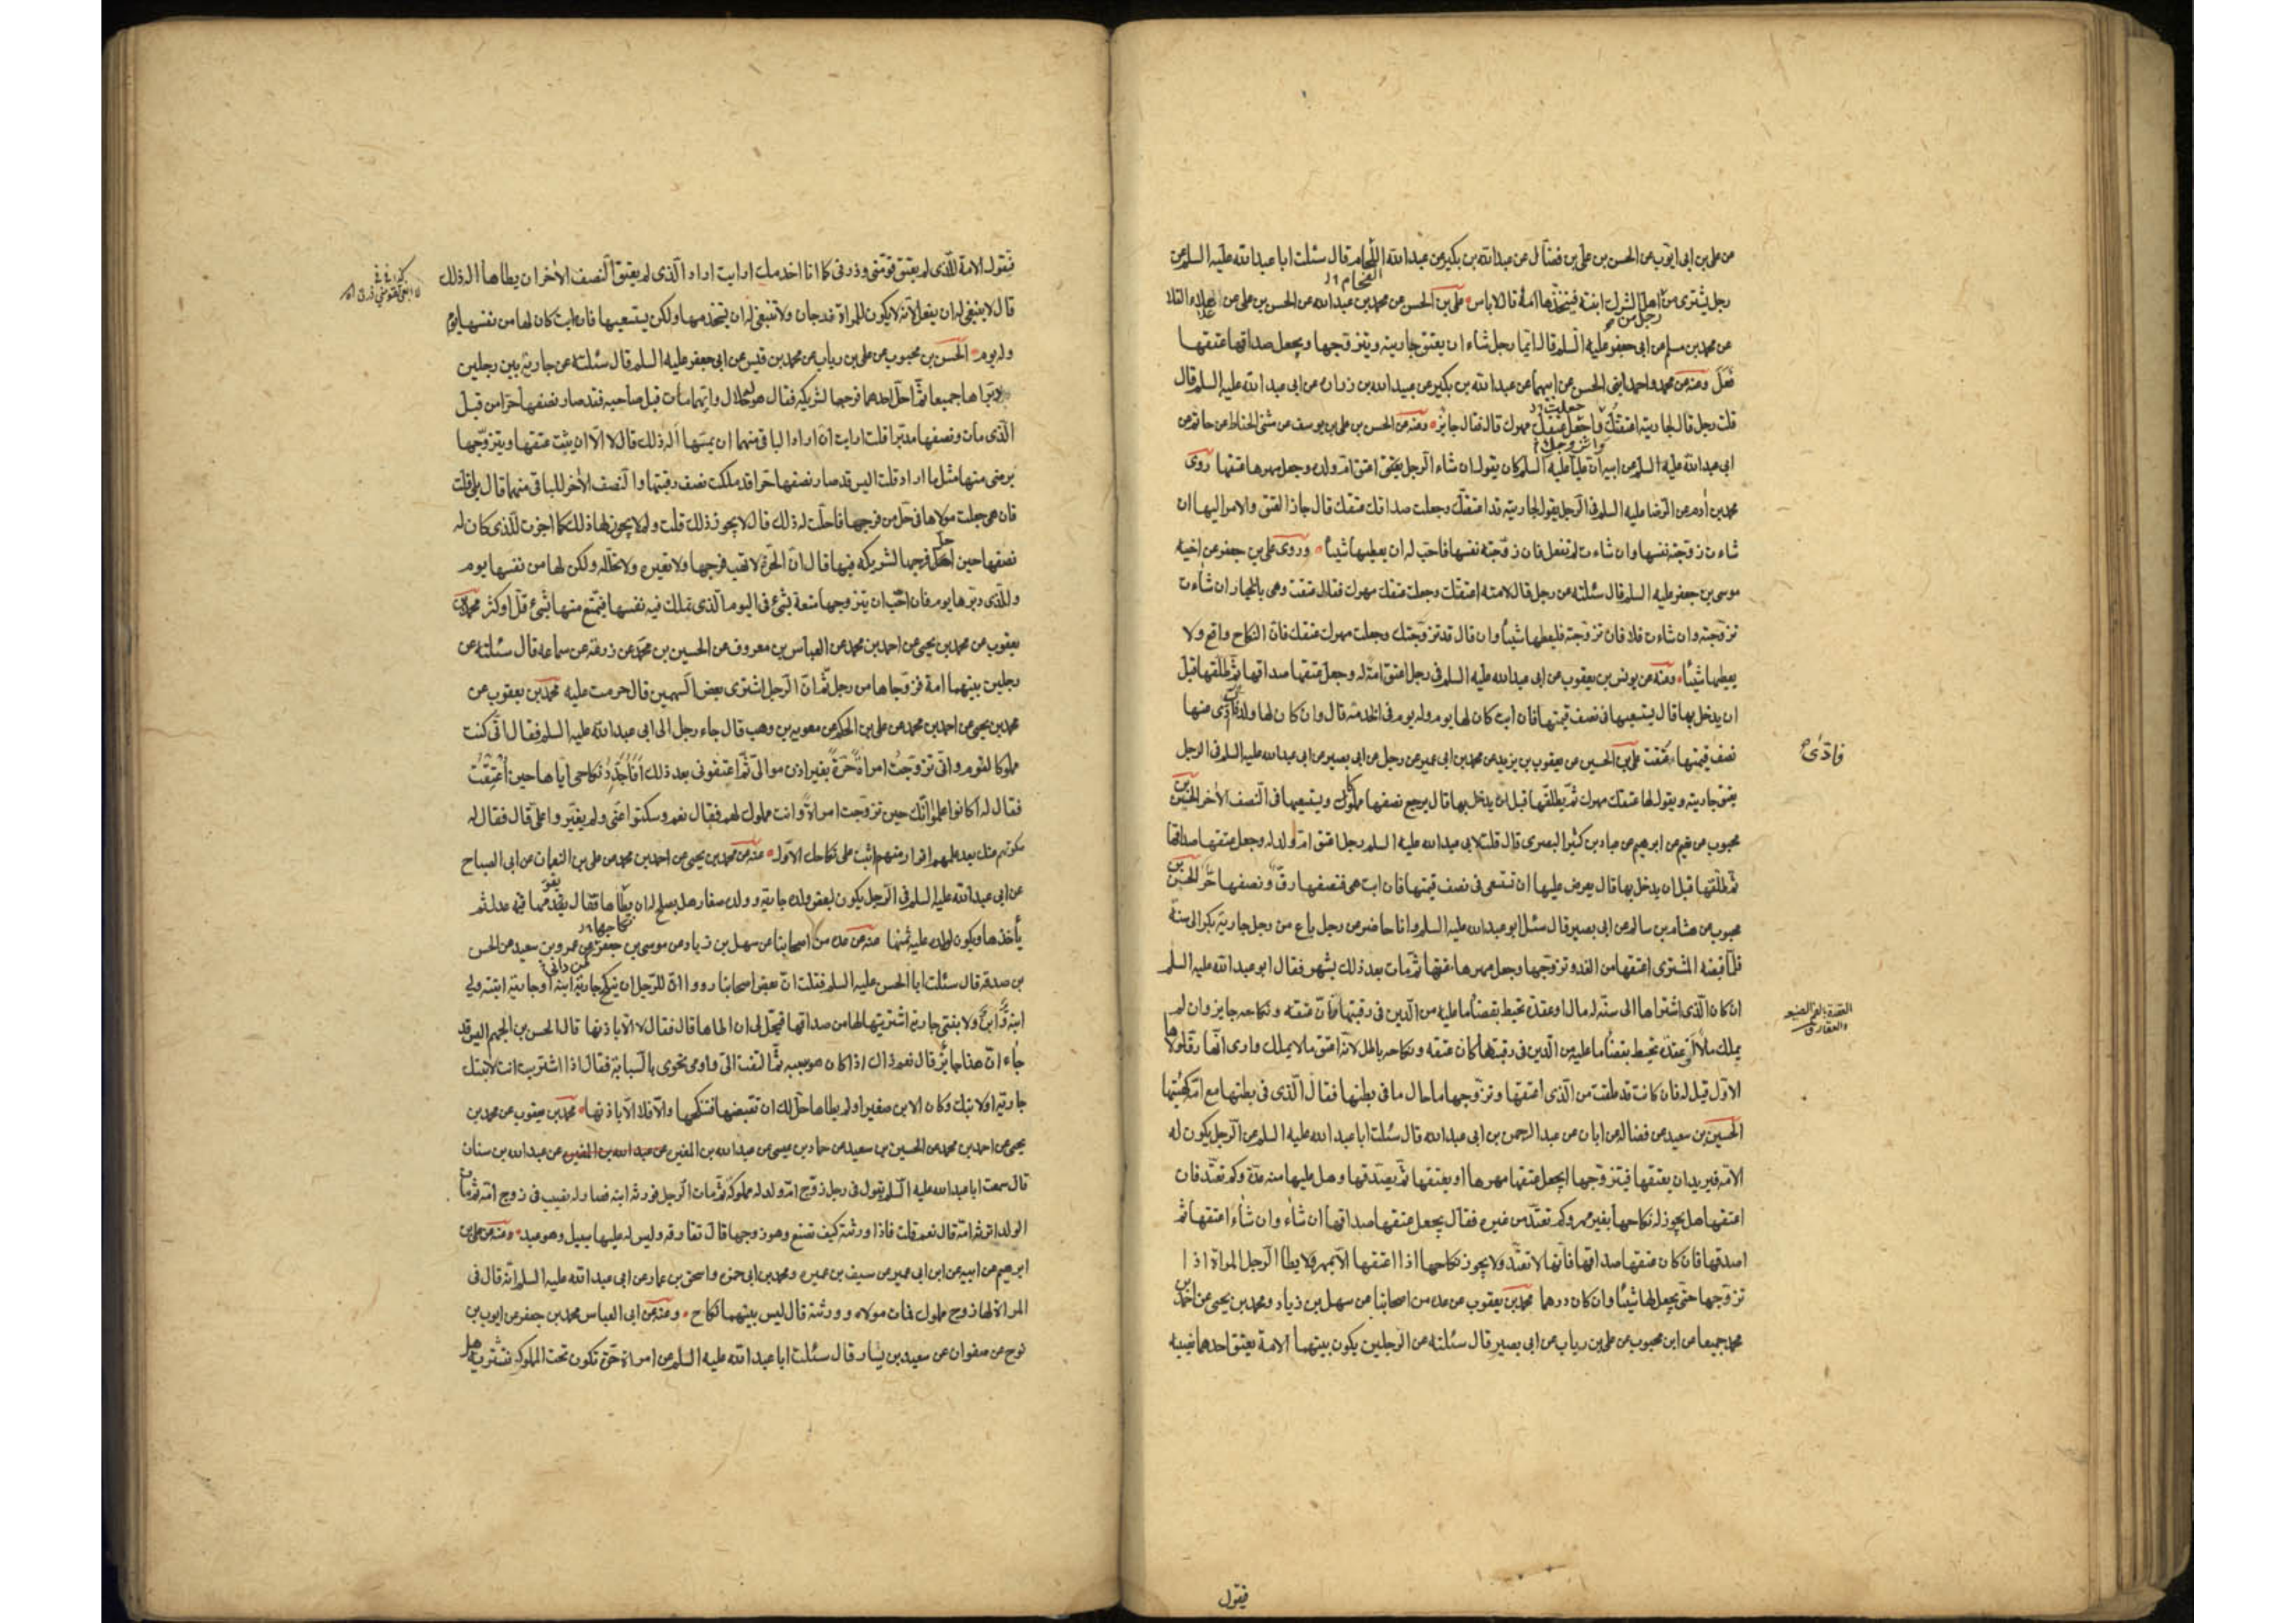 عن علي بن ابي ايوب عن الحسن بن علي بن فضال عن عبد الله بن بكير عن عبد الله اللحام قال سئلت ابا عبد الله عليه السلم عن
رجل يشترى من اهل الشرك ابنته فيتخذها امة قال لا باس علي بن الحسن عن محمد بن عبد الله عن الحسن بن علي عن العلاء
عن محمد بن مسلم عن ابي جعفر عليه السلم قال ايما رجل شاء ان يعتق جاريته ويتزوجها ويجعل صداقها عتقها
فعل وعنه عن محمد واحمد ابني الحسن عن ابيهما عن عبد الله بن بكير عن عبيد الله بن زرارة عن ابي عبد الله عليه السلم قال
قلت رجل قال لجاريته اعتقتك وجعلت عتقك مهرك قال فقال جايز وعنه عن الحسن بن علي بن يوسف عن مثنى الحناط عن حاتم عن
ابي عبد الله عليه السلم عن ابيه ان عليا عليه السلم كان يقول ان شاء الرجل يعتق ام ولده وجعل مهرها عتقها روى
محمد بن ادم عن الرضا عليه السلم في الرجل يقول لجاريته قد اعتقتك وجعلت صداقك عتقك قال جاز العتق والامر اليها ان
شاءت زوجته نفسها وان شاءت لم تفعل فان زوجته نفسها فاحب له ان يعطيها شيئا وروى علي بن جعفر عن اخيه
موسى بن جعفر عليه السلم قال سئلته عن رجل قال لامته اعتقتك وجعلت عتقك مهرك فقال عتقت وهي بالخيار ان شاءت
تزوجته وان شاءت فلا فان تزوجته فليعطها شيئا وان قال قد تزوجتك وجعلت مهرك عتقك فان النكاح واقع ولا
يعطيها شيئا وعنه عن يونس بن يعقوب عن ابي عبد الله عليه السلم في رجل اعتق امة له وجعل عتقها صداقها ثم طلقها قبل
ان يدخل بها قال يستسعيها في نصف قيمتها فان ابت كان لها يوم وله يوم في الخدمة قال وان كان لها ولد فادى عنها
نصف قيمتها عتقت علي بن الحسين عن يعقوب بن يزيد عن محمد بن ابي عمير عن رجل عن ابي بصير عن ابي عبد الله عليه السلم في الرجل
يعتق جاريته ويقول لها عتقك مهرك ثم يطلقها قبل ان يدخل بها قال يرجع نصفها مملوكا ويستسعيها في النصف الاخر الحسن بن
محبوب عن نعيم بن ابرهيم عن عباد بن كثير البصري قال قلت لابي عبد الله عليه السلم رجل اعتق ام ولد له وجعل عتقها صداقها
ثم طلقها قبل ان يدخل بها قال يعرض عليها ان تستسعى في نصف قيمتها فان ابت هي فنصفها رق ونصفها حر الحسن بن
محبوب عن هشام بن سالم عن ابي بصير قال سئل ابو عبد الله عليه السلم وانا حاضر عن رجل باع من رجل جارية بكرا الى سنة
فلما قبضها المشترى اعتقها من الغد وتزوجها وجعل مهرها عتقها ثم مات بعد ذلك بشهر فقال ابو عبد الله عليه السلم
ان كان الذي اشتراها الى سنة له مال او عقدة تحيط بقضاء ما عليه من الدين في رقبتها فان عتقه ونكاحه جايز وان لم
يملك مالا او عقدة تحيط بقضاء ما عليه من الدين في رقبتها كان عتقه ونكاحه باطل لانه اعتق ما لا يملك وارى انها رق لمولاها
الاول قيل له فان كانت قد علقت من الذي اعتقها وتزوجها ما حال ما في بطنها فقال الذي في بطنها مع امه كهيئتها
الحسين بن سعيد عن فضالة عن ابان عن عبد الرحمن بن ابي عبد الله قال سئلت ابا عبد الله عليه السلم عن الرجل يكون له
الامة فيريد ان يعتقها فيتزوجها ايجعل عتقها مهرها او يعتقها ثم يصدقها وهل عليها منه عدة وكم تعتد فان
اعتقها هل يجوز له نكاحها بغير مهر وكم تعتد من غيره فقال يجعل عتقها صداقها ان شاء وان شاء اعتقها ثم
اصدقها فان كان عتقها صداقها فانها لا تعتد ولا يجوز نكاحها اذا اعتقها الا بمهر ولا يطا الرجل المراة اذا
تزوجها حتى يجعل لها شيئا وان كان درهما محمد بن يعقوب عن عدة من اصحابنا عن سهل بن زياد ومحمد بن يحيى عن احمد بن
محمد جميعا عن ابن محبوب عن علي بن رياب عن ابي بصير قال سئلته عن الرجلين يكون بينهما الامة يعتق احدهما نصيبه
فادى
فيقول
فتقول الامة للذي لم يعتق قومني وذرني كما انا اخدمك ارايت اراد الذي لم يعتق النصف الاخر ان يطاها اله ذلك
قال لا ينبغي له ان يفعل لانه لا يكون للمراة فرجان ولا ينبغي له ان يستخدمها ولكن يستسعيها فان ابت كان لها من نفسها يوم
وله يوم الحسن بن محبوب عن علي بن رياب عن محمد بن قيس عن ابي جعفر عليه السلم قال سئلته عن جارية بين رجلين
دبراها جميعا ثم احل احدهما فرجها لشريكه فقال هو حلال وايهما مات قبل صاحبه فقد صار نصفها حرا من قبل
الذي مات ونصفها مدبرا قلت ارايت ان اراد الباقي منهما ان يمسها اله ذلك قال لا الا ان يثبت عتقها ويتزوجها
برضى منها مثل ما اراد قلت اليس قد صار نصفها حرا قد ملكت نصف رقبتها والنصف الاخر للباقي منهما قال بلى قلت
فان هي جعلت مولاها في حل من فرجها فاحلت له ذلك قال لا يجوز ذلك قلت ولم لا يجوز لها ذلك كما اجزت للذي كان له
نصفها حين احل فرجها لشريكه فيها قال ان الحرة لا تهب فرجها ولا تعيره ولا تحلله ولكن لها من نفسها يوم
وللذي دبرها يوم فان احب ان يتزوجها متعة بشيء في اليوم الذي تملك فيه نفسها فيتمتع منها بشيء قل او كثر محمد بن
يعقوب عن محمد بن يحيى عن احمد بن محمد عن العباس بن معروف عن الحسين بن محمد عن زرعة عن سماعة قال سئلته عن
رجلين بينهما امة فزوجاها من رجل ثم ان الرجل اشترى بعض السهمين قال حرمت عليه محمد بن يعقوب عن
محمد بن يحيى عن احمد بن محمد عن علي بن الحكم عن معوية بن وهب قال جاء رجل الى ابي عبد الله عليه السلم فقال اني كنت
مملوكا لقوم واني تزوجت امراة حرة بغير اذن موالي ثم اعتقوني بعد ذلك افاجدد نكاحي اياها حين اعتقت
فقال له اكانوا علموا انك حين تزوجت امراة وانت مملوك لهم فقال نعم وسكتوا عني ولم يغيروا علي قال فقال له
سكوتهم عنك بعد علمهم اقرار منهم اثبت على نكاحك الاول عنه عن محمد بن يحيى عن احمد بن محمد عن علي بن النعمان عن ابي الصباح
عن ابي عبد الله عليه السلم في الرجل يكون لبعض ولده جارية وولده صغار هل يصلح له ان يطاها فقال يقومها قيمة عدل ثم
ياخذها ويكون لولده عليه ثمنها عنه عن عدة من اصحابنا عن سهل بن زياد عن موسى بن جعفر عن عمرو بن سعيد عن الحسن
بن صدقة قال سئلت ابا الحسن عليه السلم فقلت ان بعض اصحابنا رووا ان للرجل ان ينكح جارية ابنه وجارية ابنته ولي
ابنة وابن ولابنتي جارية اشتريتها لها من صداقها فيحل لي ان اطاها قال فقال لا الا باذنها قال الحسن بن الجهم اليس قد
جاء ان هذا جايز قال نعم ذاك اذا كان هو سببه ثم التفت الي واومى نحوي بالسبابة فقال اذا اشتريت انت لابنتك
جارية او لابنك وكان الابن صغيرا ولم يطاها حل لك ان تقبضها فتنكحها والا فلا الا باذنها محمد بن يعقوب عن محمد بن
يحيى عن احمد بن محمد عن الحسين بن سعيد عن حماد بن عيسى عن عبد الله بن المغيرة عن عبد الله بن سنان
قال سمعت ابا عبد الله عليه السلم يقول في رجل زوج ام ولد له مملوكه ثم مات الرجل فورثه ابنه فصار له نصيب في زوج امه ثم مات
الولد اترثه امه قال نعم قلت فاذا ورثته كيف تصنع وهو زوجها قال تفارقه وليس له عليها سبيل وهو عبد وعنه عن علي بن
ابرهيم عن ابيه عن ابن ابي عمير عن سيف بن عميرة ومحمد بن ابي حمزة واسحق بن عمار عن ابي عبد الله عليه السلم انه قال في
المراة لها زوج مملوك فمات مولاه وورثته قال ليس بينهما نكاح وعنه عن ابي العباس محمد بن جعفر عن ايوب بن
نوح عن صفوان عن سعيد بن يسار قال سئلت ابا عبد الله عليه السلم عن امراة حرة تكون تحت المملوك فتشتريه هل